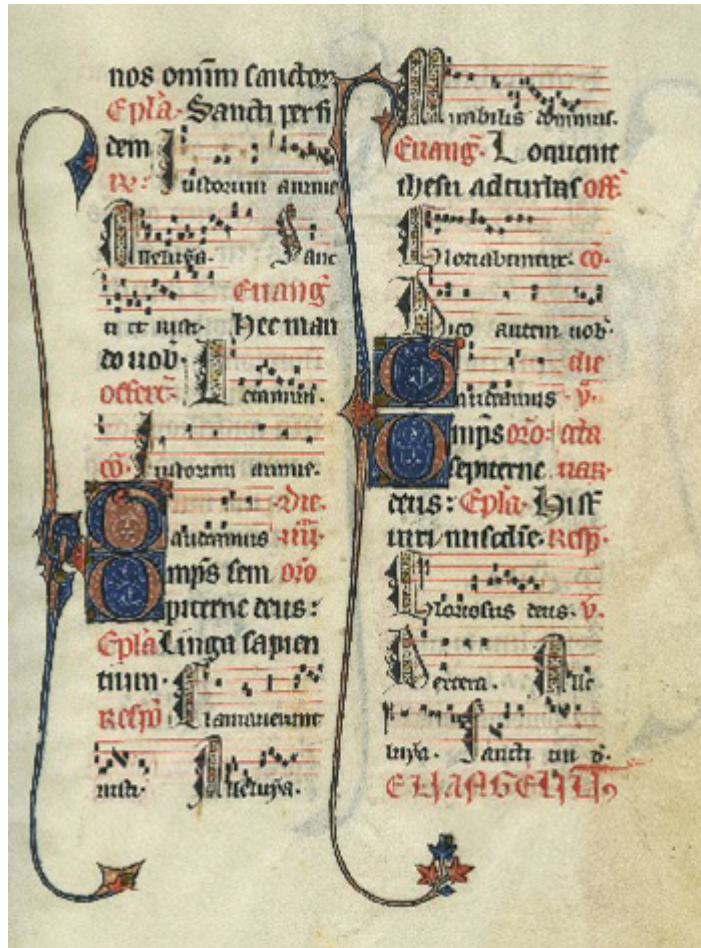 nos omĩm sanctor
Ep̃la· Sancti per fi
dem Iustorum anime
℟:
Alleluya· Sanc
ti et iusti· Euang̃
Hec man
do uob̃· Letamini·
offerẽ·
c̃o· Iustorum anime·
Gaudeamus ·die·
Omp̃s sem or̃o
piterne deus:
Ep̃la Lingu sapien
tium· Clamauerunt
Resp̃
iusti· Alleluya·
Mirabilis dominus·
Euang̃· Loquente
ihesu ad turbas off̃
Gloriabuntur· c̃o·
Dico autem uob̃·
Gaudeamus ·die
Omp̃s or̃o· octa
sepiterne uar·
deus: Ep̃la· Hii sr̃
uiri misc̃die· Resp̃·
Gloriosus deus· v̄·
Dextera· Alle
luya· Sancti tui d̃·
EUANGELIU